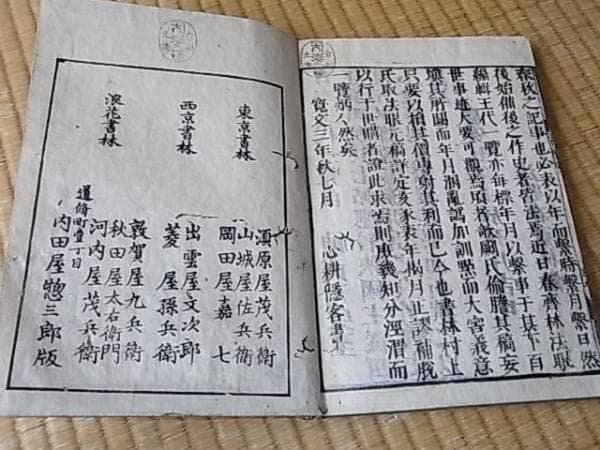 春秋之記事也必表以年而繫時繫月繫日然
後始備後之作史者皆法焉近日春齊林法眼
編輯王代一覽亦每標年月以繫事于其下百
世事迹大要可觀焉頃者 氏偷謄其稿妄
塡其所闕而年月淆亂譌加訓點而大害義意
只要以損其價專射其利而已今也書林村上
氏取法眼元稿評定亥豕表年揭月正誤補脫
以行于世購者證此求 則庶幾知分涇渭而
一覽炳々然矣
寬文三年秋七月
耕隱客書
東京書林
須原屋茂兵衛
山城屋佐兵衛
岡田屋嘉七
西京書林
出雲屋文次郎
菱屋孫兵衛
浪花書林
敦賀屋九兵衛
秋田屋太右衛門
河内屋茂兵衛
道修町壹丁目
内田屋惣三郎版